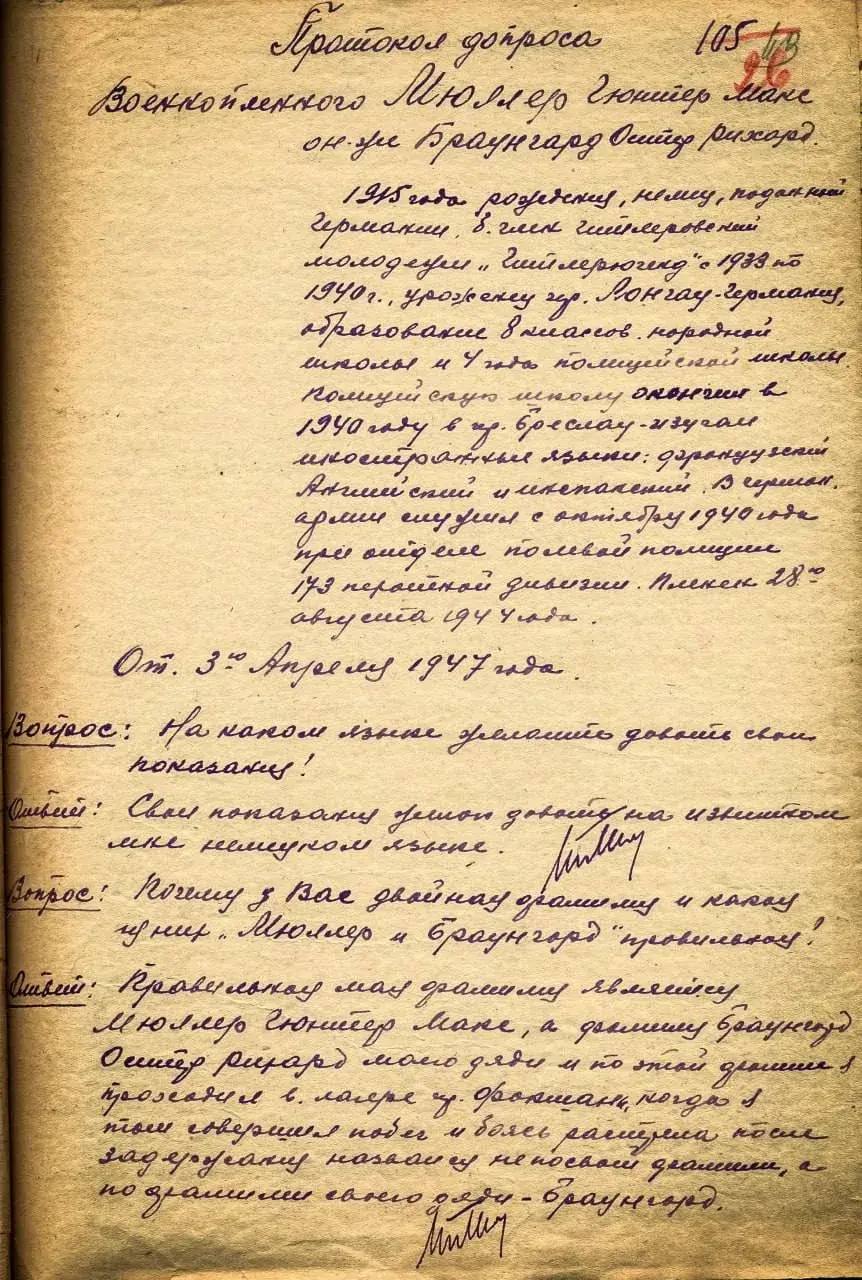 Протокол допроса 105
26
Военнопленного Мюллер Гюнтер Макс
он-же Браунгард Рихард.
1915 года рождения, немец, подданный
Германии, б. член гитлеровский
молодежи „Гитлерюгенд" с 1933 по
1940 г., уроженец гор. Лонгау-Германия,
образование 8 классов народной
школы и 4 года полицейской школы.
Полицейскую школу окончил в
1940 году в гр. Бреслау-изучал
иностранные языки: французский
Английский и испанский. В герман.
армии служил с октября 1940 года
при отделе полевой полиции
173 пехотной дивизии. Пленен 28го
августа 1944 года.
От. 3го Апреля 1947 года.
Вопрос: На каком языке желаете давать свои
показания!
Ответ: Свои показания желаю давать на известном
мне немецком языке.
Вопрос: Почему у Вас двойная фамилия и какая
из них „Мюллер и Браунгард" правильная!
Ответ: Правильная моя фамилия является
Мюллер Гюнтер Макс, а фамилия Браунгард
Рихард моего дяди и по этой фамилии я
проходил в лагере гр. Фокшаны, когда я
там совершил побег и боясь растрела после
задержания назвался не по своей фамилии, а
по фамилии своего дяди - Браунгард.